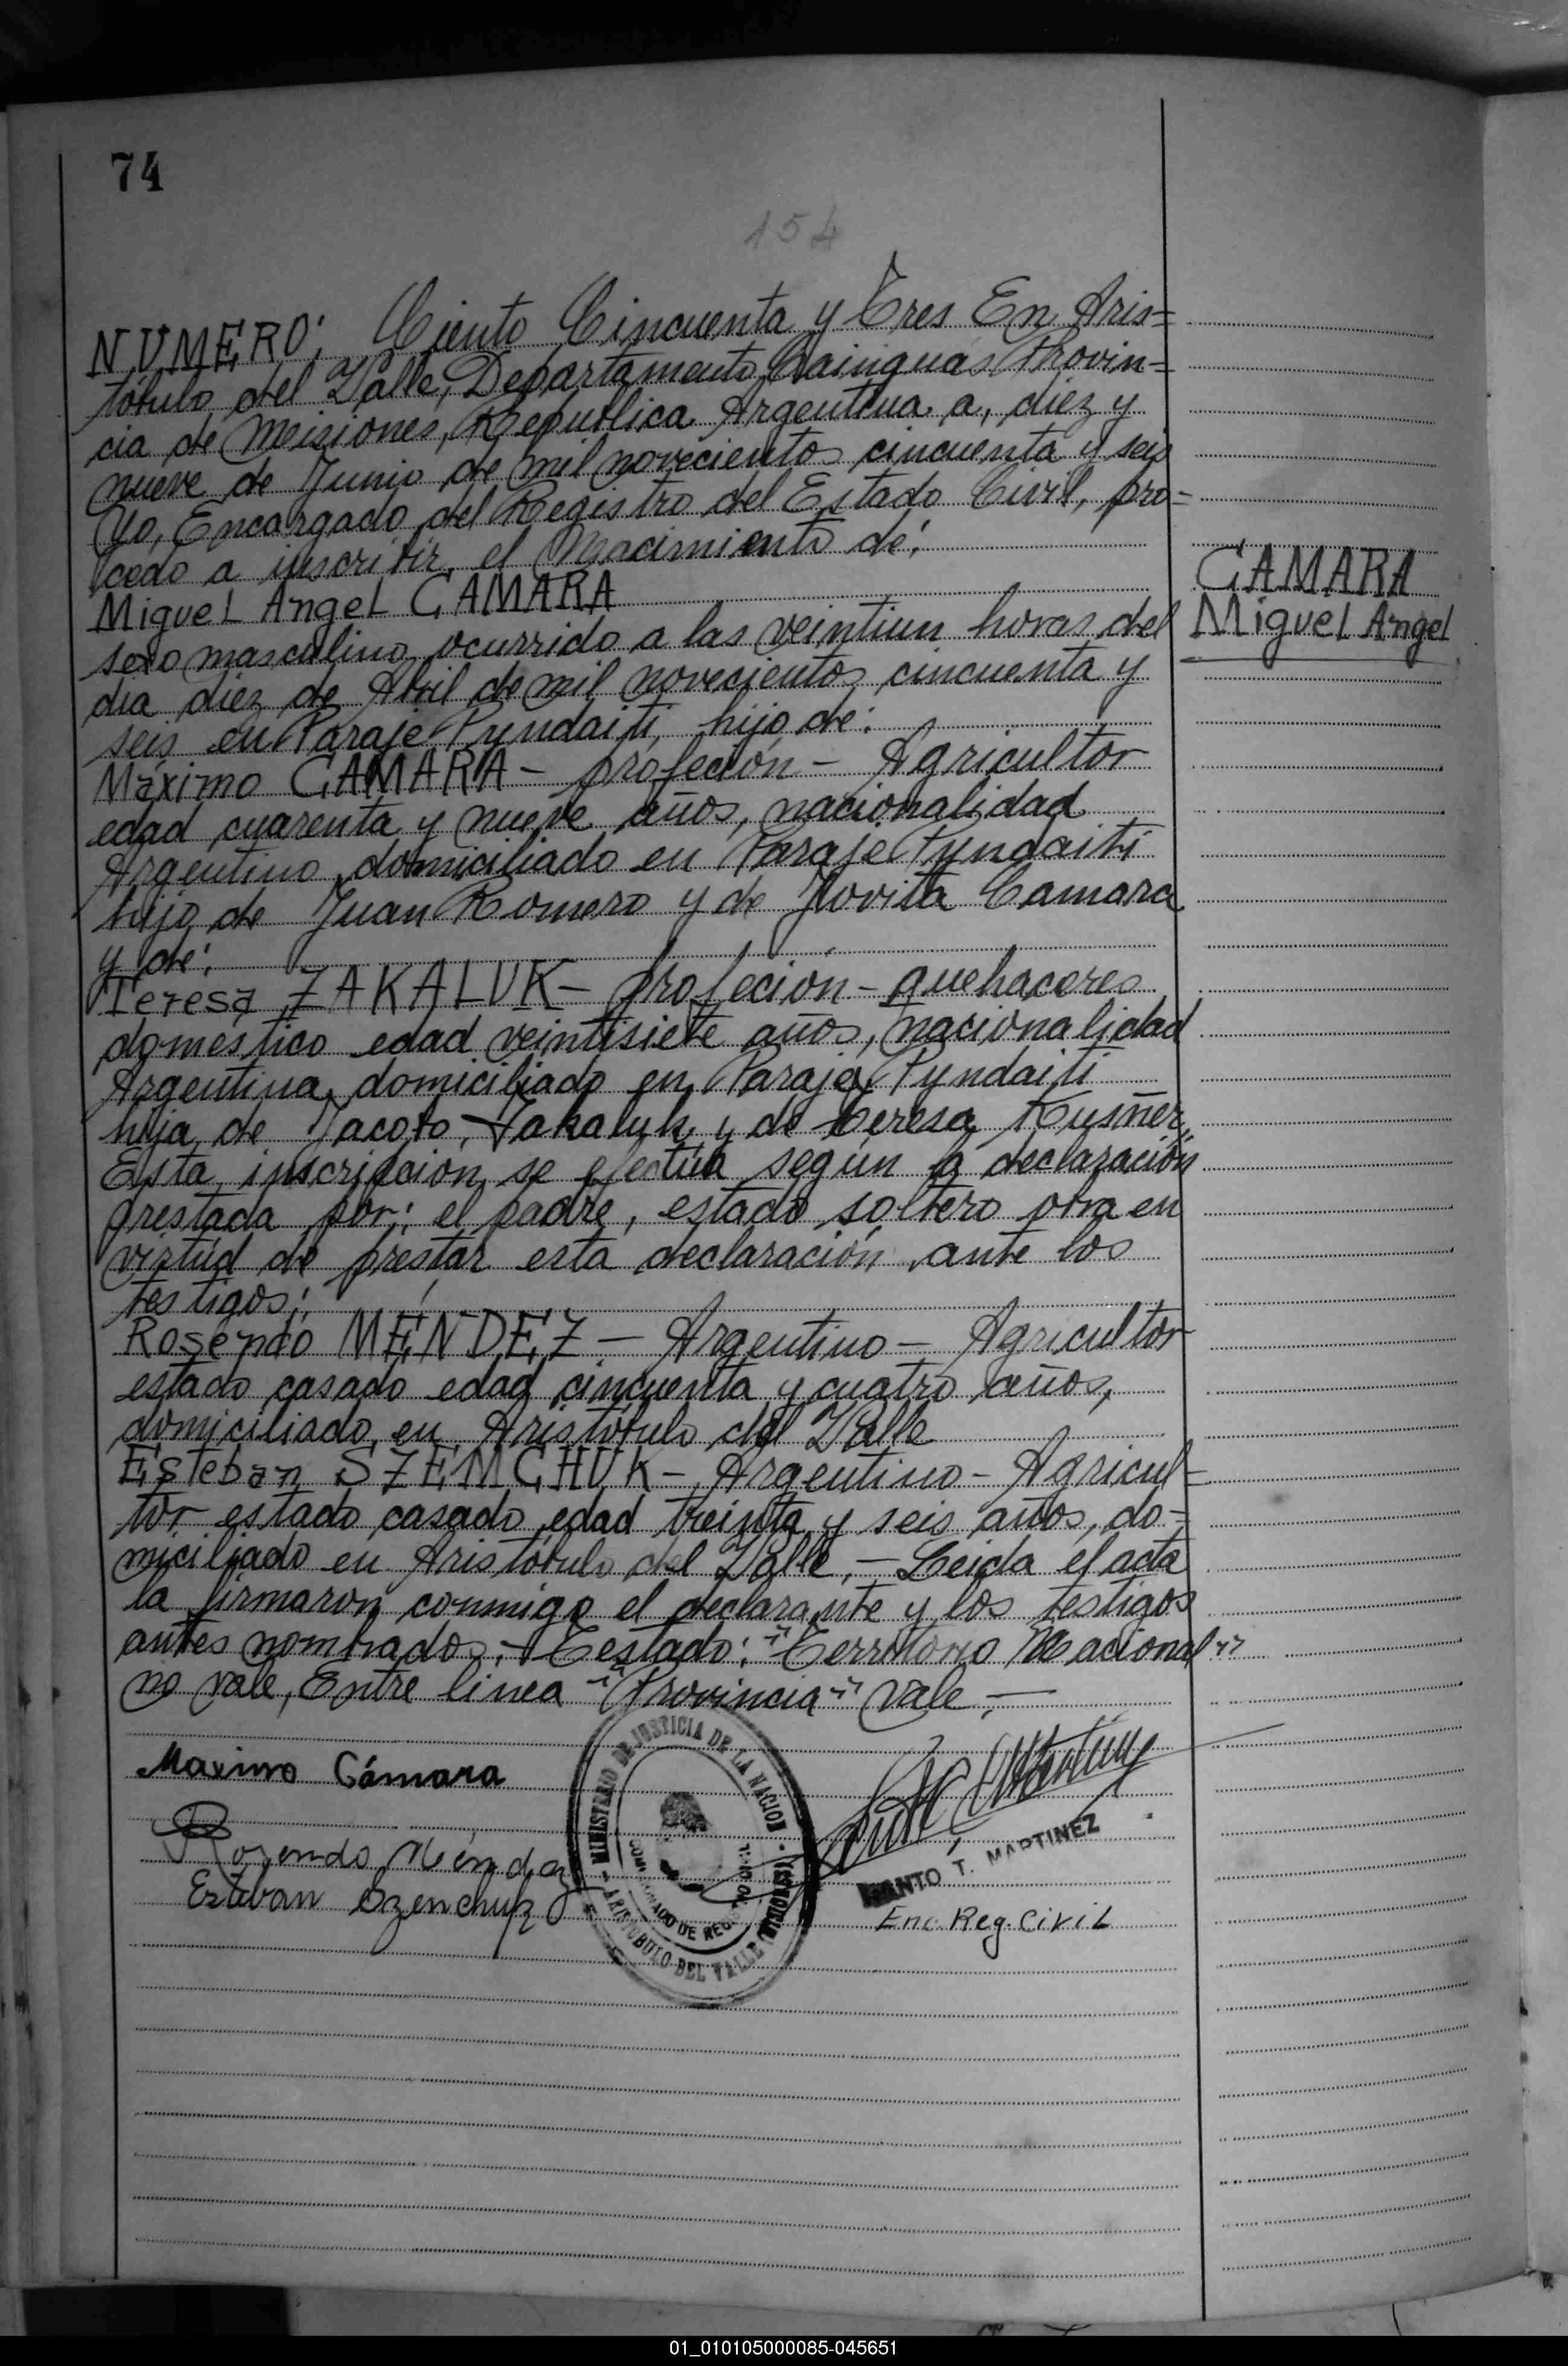 74
154
NUMERO: Ciento Cincuenta y Tres En Aris=
tóbulo del Valle, Departamento Cainguás Provin=
cia de Misiones, República Argentina a, diez y
nueve de Junio de mil novecientos cincuenta y seis
Yo, Encargado del Registro del Estado Civil, pro=
cedo a inscribir, el Nacimiento de:
Miguel Angel CAMARA
CAMARA
Miguel Angel
sexo masculino ocurrido a las veintiun horas del
dia diez de Abril de mil novecientos cincuenta y
seis en Paraje Pyndaiti, hijo de:
Máximo CAMARA - profeción - Agricultor
edad cuarenta y nueve años, nacionalidad
Argentino domiciliado en Paraje Pyndaiti
hijo de Juan Romero y de Jovita Camara
y de:
Teresa ZAKALUK - profeción - quehaceres
domestico edad veintisiete años, nacionalidad
Argentina, domiciliado en Paraje Pyndaiti
hija de Jacobo Zakaluk y de Teresa Kusñer,
Esta inscripción se efectúa según la declaración
prestada por: el padre, estado soltero obra en
virtúd de prestar esta declaración ante los
testigos:
Rosendo MÉNDEZ - Argentino - Agricultor
estado casado edad cincuenta y cuatro años,
domiciliado en Aristóbulo del Valle
Esteban SZEMCHUK - Argentino - Agricul=
tor estado casado edad treinta y seis años, do=
miciliado en Aristóbulo del Valle, - Leida el acta
la firmaron conmigo el declarante y los testigos
antes nombrados: - Testado: "Territorio Nacional"
no vale, Entre linea "Provincia" vale. -
Maximo Cámara
Rozendo Méndez
Esteban Szenchuk
MINISTERIO DE JUSTICIA DE LA NACION
ARISTOBULO DEL VALLE
SANTO T. MARTINEZ
Enc. Reg. Civil
01_010105000085-045651